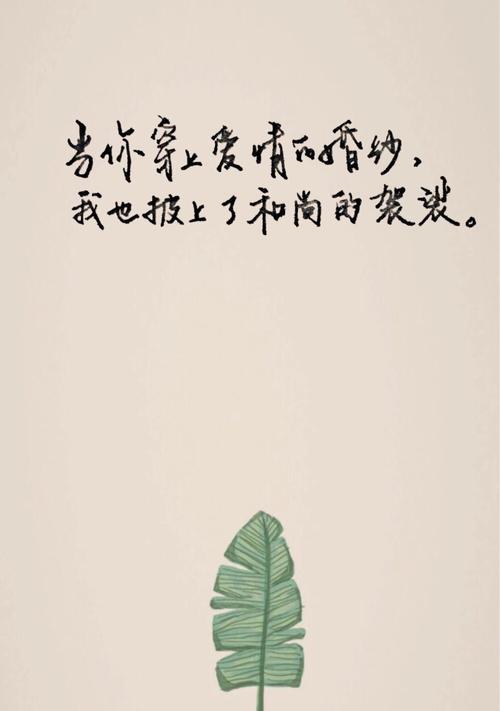 当你穿上爱情的婚纱，
我也披上了和尚的袈裟。